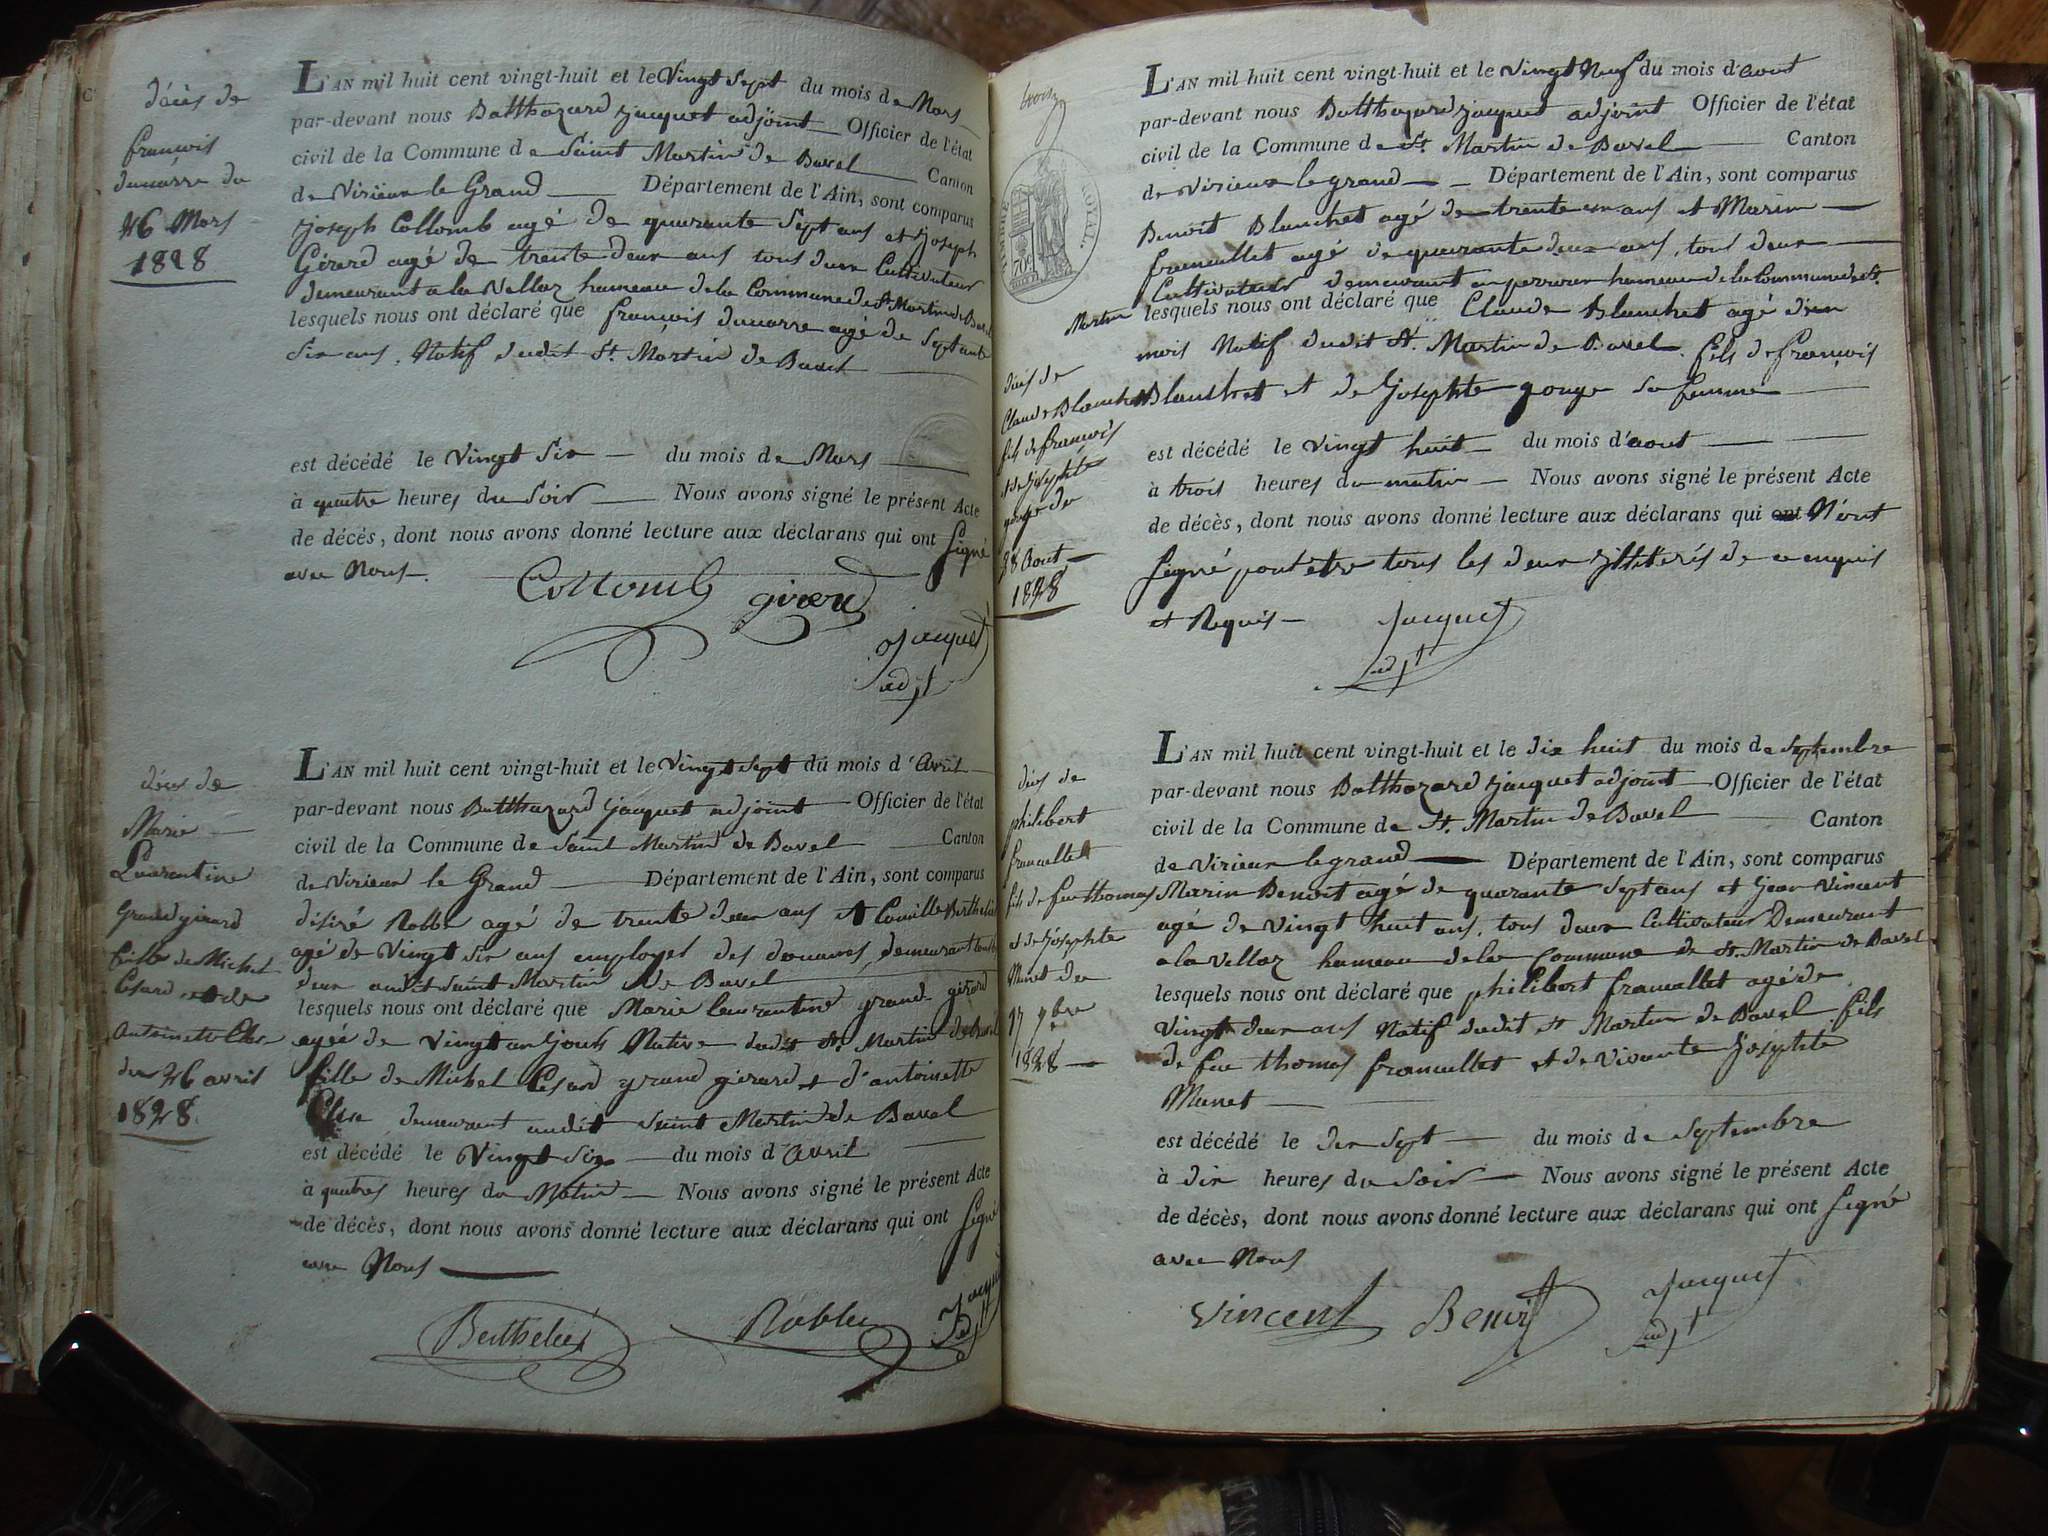 décès de
françois
ducarre du
26 Mars
1828
L'AN mil huit cent vingt-huit et le Vingt Sept du mois de Mars
par-devant nous Balthazard Jacquet adjoint Officier de l'état
civil de la Commune de Saint Martin de Bavel Canton
de Virieux le Grand Département de l'Ain, sont comparus
Joseph Collomb agé de quarante Sept ans et Joseph
Gérard agé de trente deux ans tous deux Cultivateur
demeurant a la Vellaz hameau de la Commune de St Martin de Bavel
lesquels nous ont déclaré que françois ducarre agé de Septante
Six ans, Natif dudit St. Martin de Bavel
est décédé le Vingt Six du mois de Mars
à quatre heures du Soir Nous avons signé le présent Acte
de décès, dont nous avons donné lecture aux déclarans qui ont Signé
avec Nous
Collomb girard
Jacquet
adjt
décès de
Marie
Laurentine
Grand girard
fille de Michel
Césard et de
Antoinette
du 26 avril
1828.
L'AN mil huit cent vingt-huit et le Vingt Sept du mois d'Avril
par-devant nous Balthazard Jacquet adjoint Officier de l'état
civil de la Commune de Saint Martin de Bavel Canton
de Virieux le Grand Département de l'Ain, sont comparus
désiré agé de trente deux ans et Camille
agé de Vingt Six ans employes des douanes, demeurant tous
deux audit Saint Martin de Bavel
lesquels nous ont déclaré que Marie laurentine grand girard
agée de Vingt un Jours Native dudit St. Martin de Bavel
fille de Michel Césard grand girard et d'antoinette
demeurant audit Saint Martin de Bavel
est décédé le Vingt Six du mois d'Avril
à quatres heures du Matin Nous avons signé le présent Acte
de décès, dont nous avons donné lecture aux déclarans qui ont Signé
avec Nous
Berthelier
Jacquet
adjt
TIMBRE ROYAL
L'AN mil huit cent vingt-huit et le Vingt Neuf du mois d'aout
par-devant nous Balthazard Jacquet adjoint Officier de l'état
civil de la Commune de St. Martin de Bavel Canton
de Virieux le grand Département de l'Ain, sont comparus
Benoit Blanchet agé de trente un ans et Marin
francallet agé de quarante deux ans, tous deux
Cultivateur demeurant hameau de la Commune de St.
Martin lesquels nous ont déclaré que Claude Blanchet agé d'un
mois Natif dudit St. Martin de Bavel. fils de françois
Blanchet et de Josephte gouge sa femme
décès de
Claude Blanchet
fils de françois
et de Josephte
gouge du
28 Aout
1828
est décédé le vingt huit du mois d'aout
à trois heures du matin Nous avons signé le présent Acte
de décès, dont nous avons donné lecture aux déclarans qui ont N'ont
Signé pout être tous les deux Illitérés de ce enquis
et Requis
Jacquet
adjt
L'AN mil huit cent vingt-huit et le dix huit du mois de Septembre
par-devant nous Balthazard Jacquet adjoint Officier de l'état
civil de la Commune de St. Martin de Bavel Canton
de Virieux le grand Département de l'Ain, sont comparus
Marin Benoit agé de quarante Sept ans et Jean Vincent
agé de Vingt huit ans, tous deux Cultivateur Demeurant
a la Vellaz hameau de la Commune de St. Martin de Bavel
lesquels nous ont déclaré que philibert francallet agé de
Vingt deux ans Natif dudit St Martin de Bavel fils
de feu thomas francallet et de Vivante Josephte
Munet
décès de
philibert
francallet
fils de feu thomas
et de Josephte
Munet du
17 7bre
1828
est décédé le dix Sept du mois de Septembre
à dix heures du Soir Nous avons signé le présent Acte
de décès, dont nous avons donné lecture aux déclarans qui ont Signé
avec Nous
Vincent Benoit Jacquet
adjt